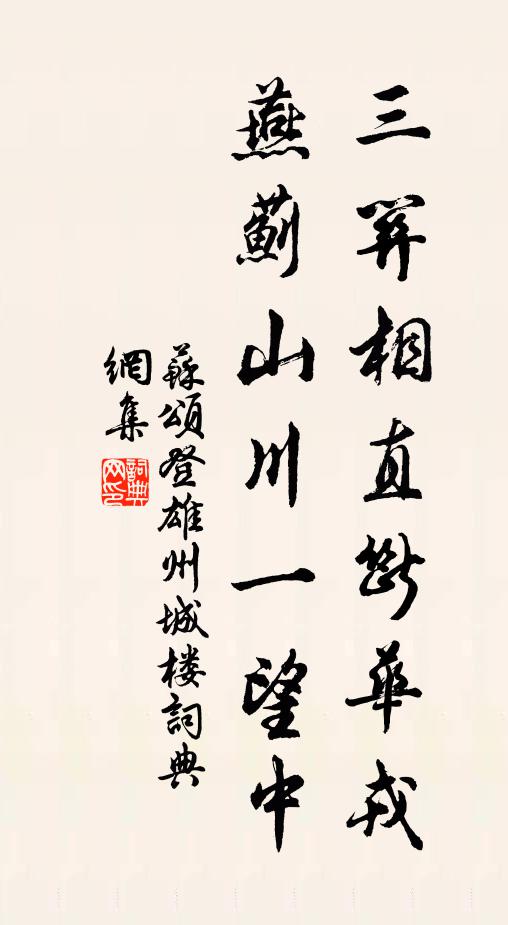 三關相直斷華戎
燕薊山川一望中
蘇頌登雄州城楼詞典
網集
詞典网印